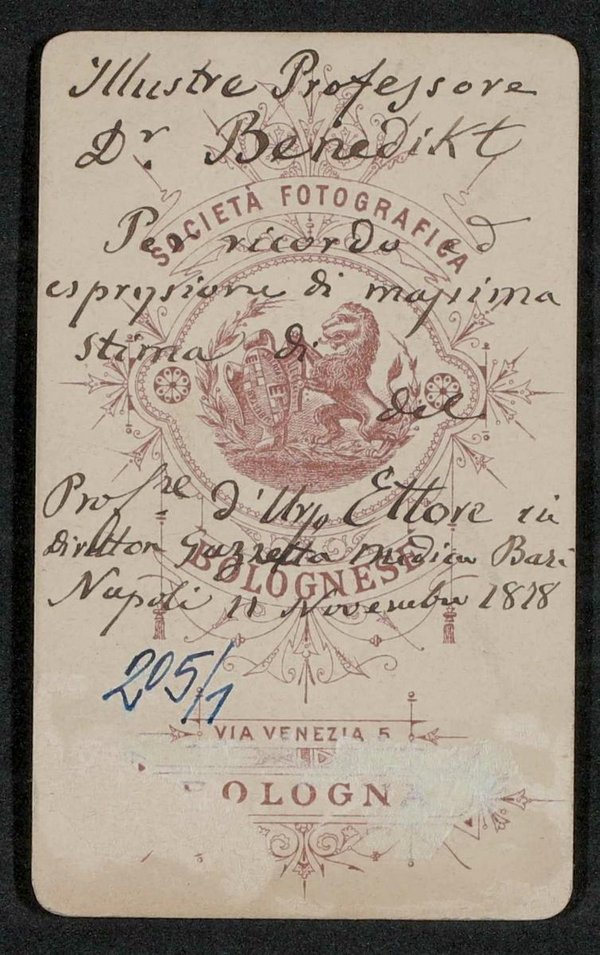 Illustre Professore
Dr. Benedikt
SOCIETÀ FOTOGRAFICA
Per ricordo ed
espressione di massima
stima di
del
Profre d'Urso Ettore
Direttor Gazzetta Medica Bari
BOLOGNESE
Napoli 11 Novembre 1878
205/1
VIA VENEZIA 5
BOLOGNA